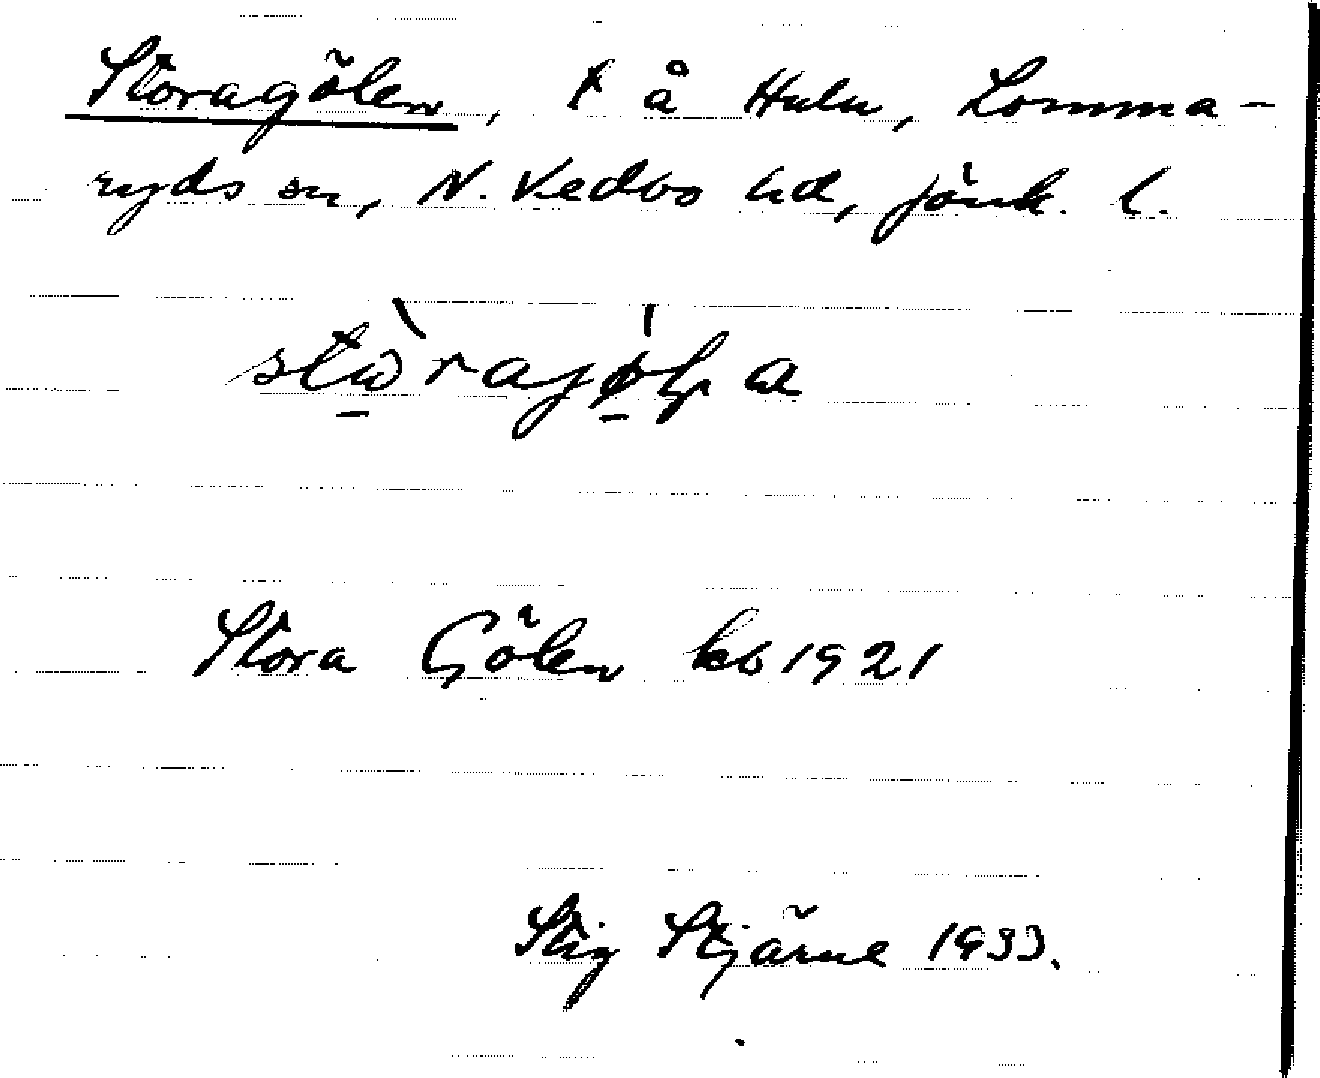 Storagölen, t å Hulu, Lomma-
ryds sn, N. Vedbo hd, Jönk. l.
Stora Gölen kb 1921
Stig Stjärne 1933.